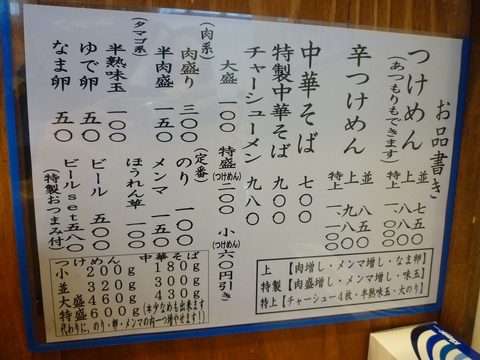 お品書き
つけめん 並 七五〇
(あつもりもできます) 上
特上
辛つけめん 並
上
特上
中華そば 七〇〇
特製中華そば 九〇〇
チャーシューメン 九八〇
大盛 一〇〇 特盛(つけめん)二〇〇 小(つけめん)六〇円引き
(肉系)
肉盛り 三〇〇
半肉盛 一五〇
(タマゴ系)
半熟味玉 一〇〇
ゆで卵 五〇
なま卵 五〇
(定番)
のり 一〇〇
メンマ
ほうれん草
ビール 五〇〇
ビールset 五八〇
(特製おつまみ付)
上 【肉増し・メンマ増し・なま卵】
特製【肉盛増し・メンマ増し・味玉】
特上【チャーシュー4枚・半熟味玉・大のり】
つけめん 中華そば
小 200g 180g
並 300g 300g
大盛 460g 430g
特盛 600g (※少なめも出来ます
代わりに、のり・卵・メンマの内一つ増やせます!)